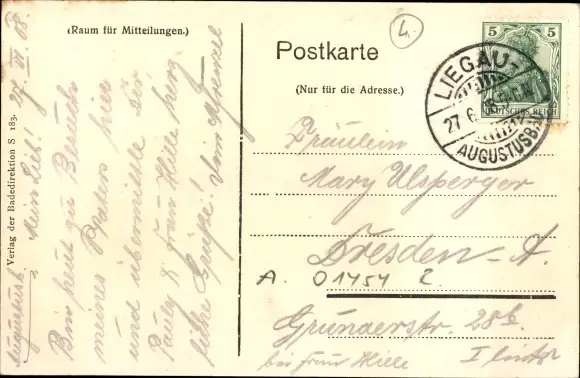 (Raum für Mitteilungen.)
4.
Postkarte
(Nur für die Adresse.)
5 5
DEUTSCHES REICH
LIEGAU-
27.6.08
AUGUSTUSBAD
Verlag der Badedirektion S 183.
Augustusb. 27. VI 08.
Mein Lieb!
Bin heut zu Besuch
meines Paten hier
und übermittle Dir
Pauly & Frau Hille herz-
liche Grüße!
Fräulein
Mary Ulsperger
Dresden-A.
A. 01454 2
Grunaerstr. 28b
bei Frau Hille I links